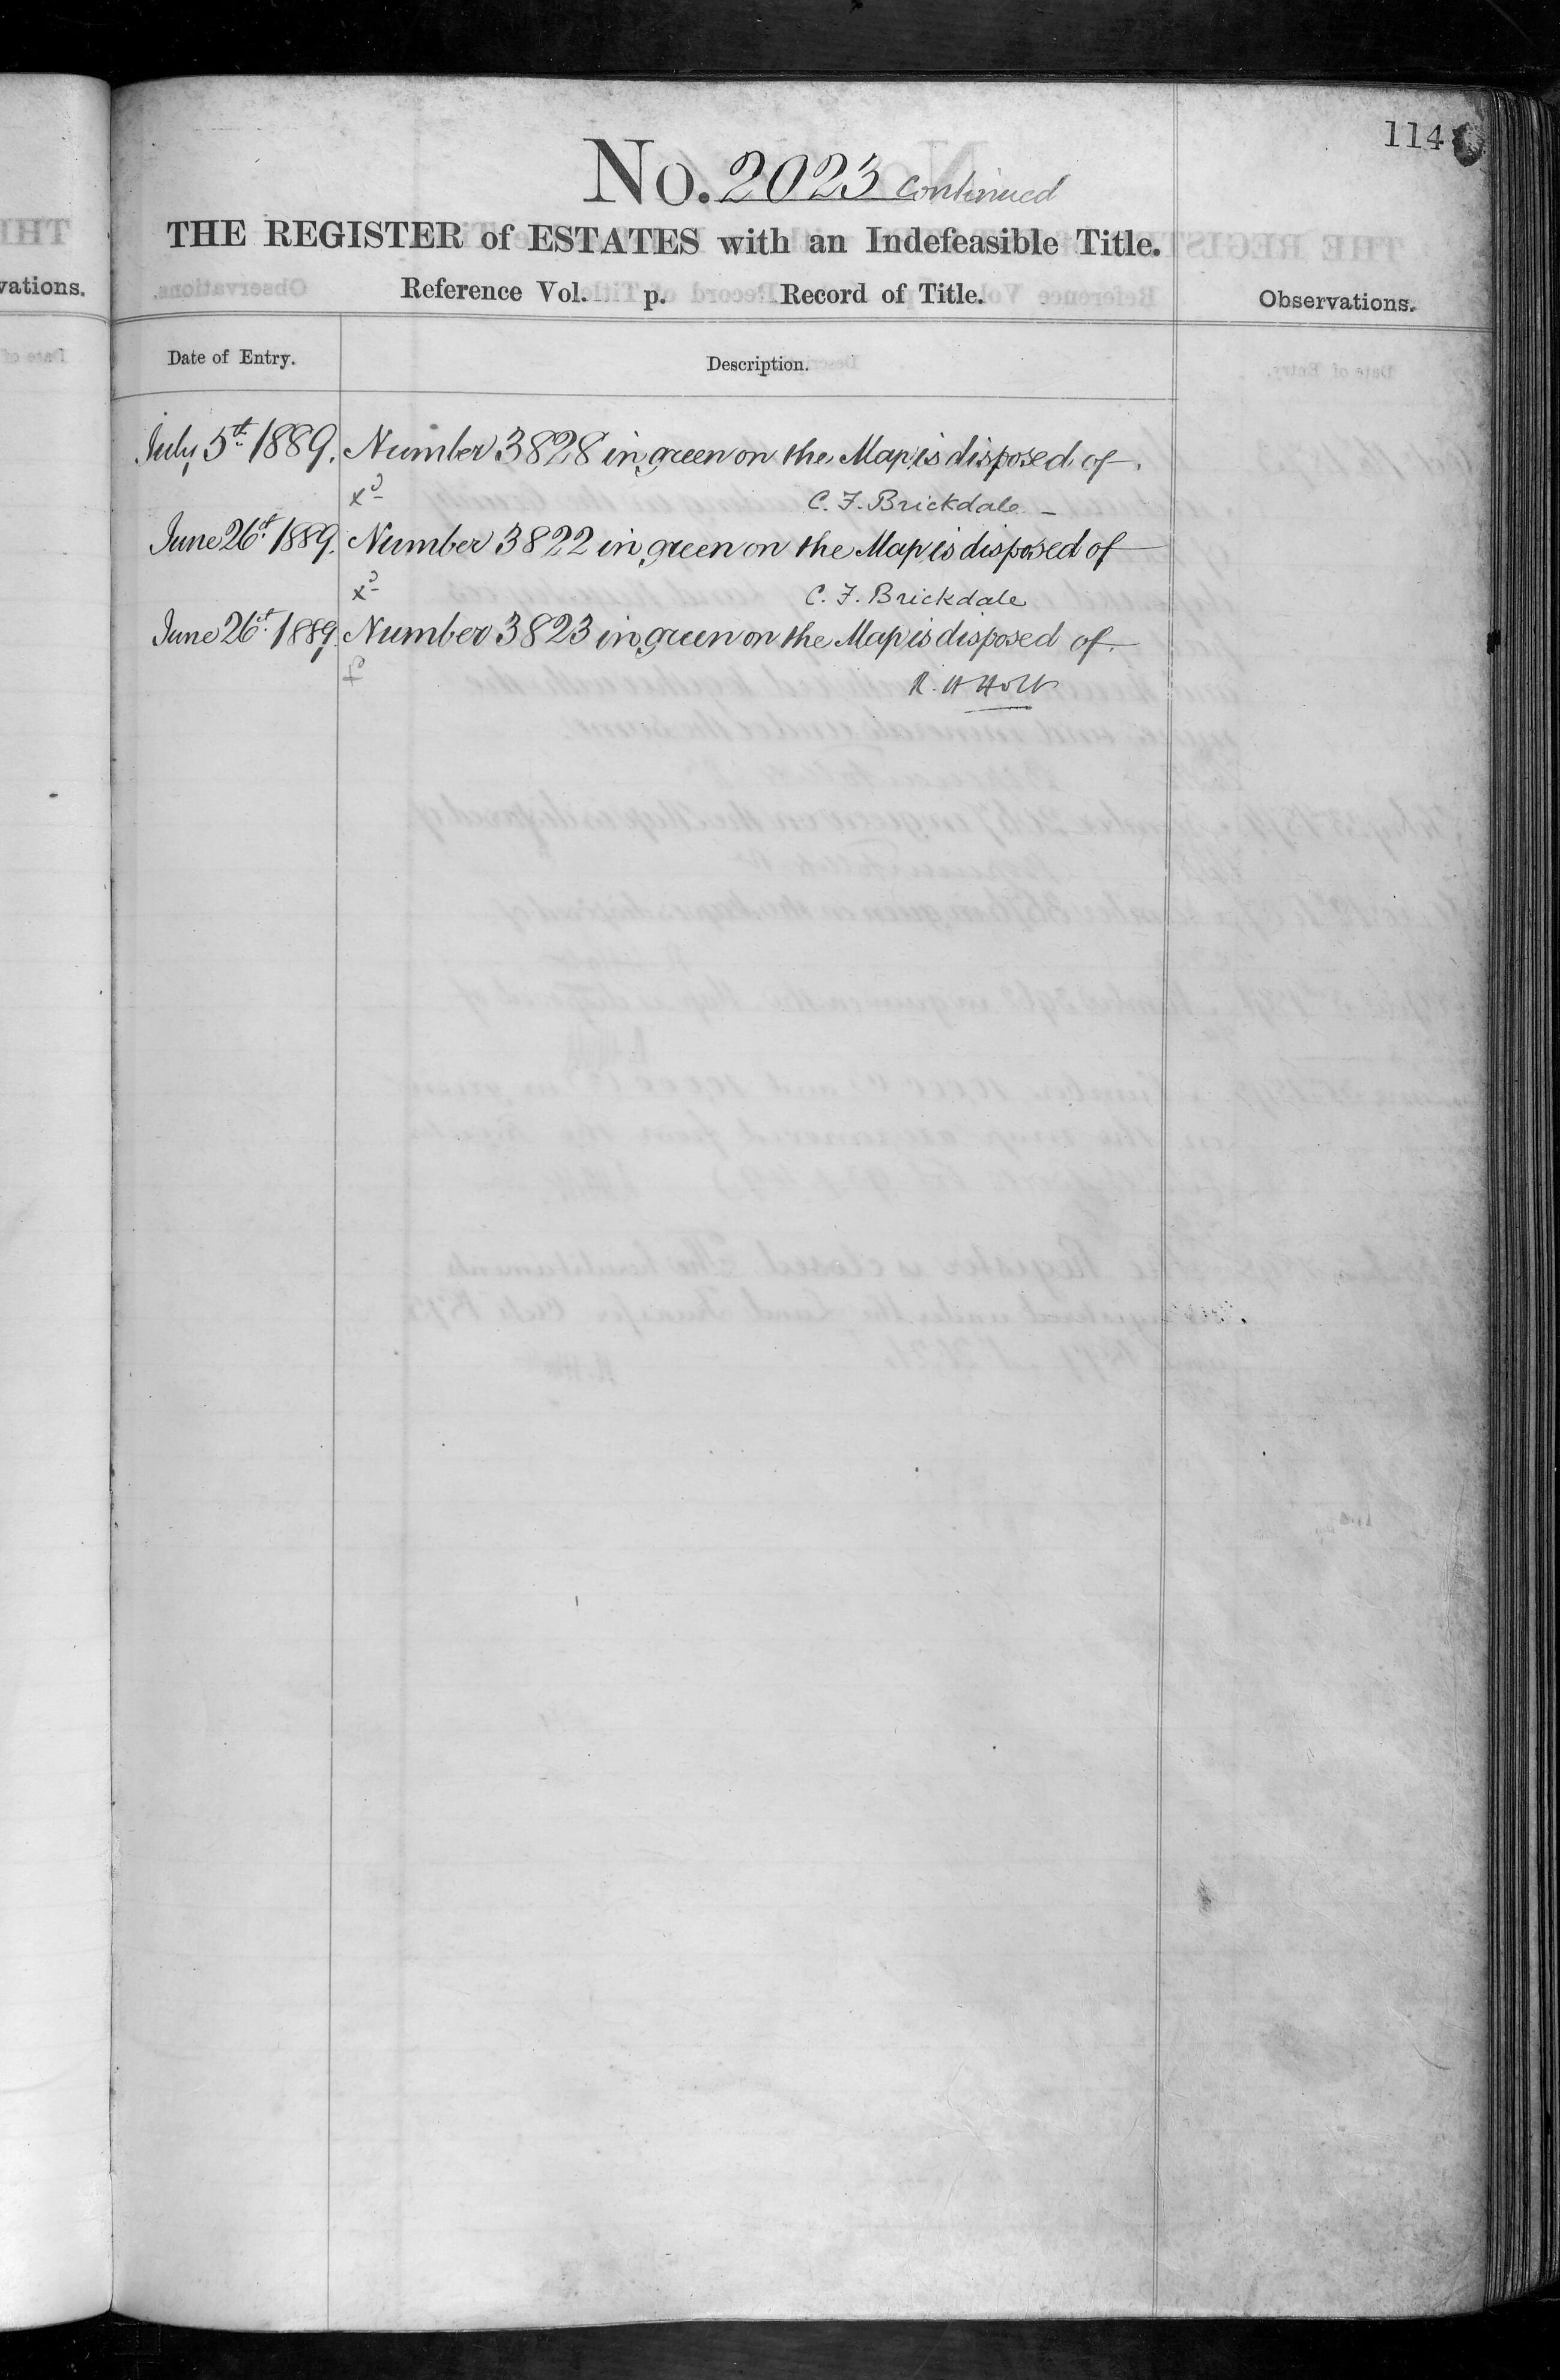 114
No. 2023 continued
THE REGISTER of ESTATES with an Indefeasible Title.
Reference Vol. p. Record of Title.
vations.
Observations.
Date of Entry.
Description.
July 5th 1889. Number 3828 in green on the Map is disposed of.
C. F. Brickdale
June 26th 1889. Number 3822 in green on the Map is disposed of
C. F. Brickdale
June 26th 1889. Number 3823 in green on the Map is disposed of.
R. H Holt